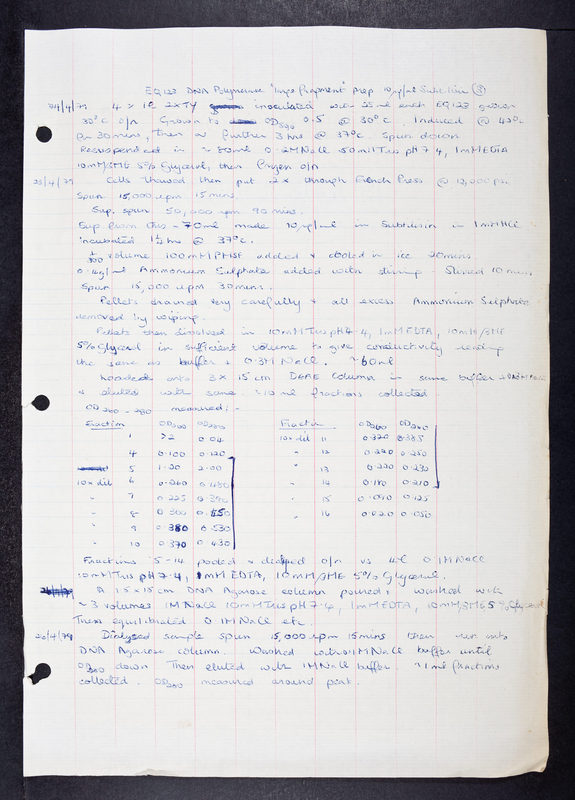 EQ123 DNA Polymerase "large fragment" prep 10μg/ml Subtilisin (3)
24/4/79 4 x 1l 2xTY inoculated with 25ml each EQ123 grown
30°C o/n Grown to OD590 0.5 @ 30°C. Induced @ 42°C
for 30mins, then a further 3hrs @ 37°C. Spun down
Resuspended in ~80ml 0.2M NaCl 50mM Tris pH 7.4, 1mM EDTA
10mM βME 5% Glycerol, then frozen o/n
25/4/79 Cells thawed then put 2x through French Press @ 12,000 psi.
Spun 15,000 rpm 15mins
Sup. spun 50,000 rpm 90 mins.
Sup from this ~70ml made 10μg/ml in Subtilisin in 1mM HCl
incubated 1½ hrs @ 37°C.
1/100 volume 100mM PMSF added & cooled in ice 20mins.
0.4g/ml Ammonium Sulphate added with stirring. Stirred 10 mins.
Spun 15,000 rpm 30mins.
Pellets drained very carefully & all excess Ammonium Sulphate
removed by wiping.
Pellets then dissolved in 10mM Tris pH 7.4, 1mM EDTA, 10mM βME
5% Glycerol in sufficient volume to give conductivity reading
the same as buffer + 0.3M NaCl. ~60ml
Loaded onto 3 x 15cm DEAE Column in same buffer
& eluted with same. ~10ml fractions collected
OD260-280 measured:-
Fraction OD260 OD280 Fraction OD260 OD280
1 >2 0.04 10x dil 11 0.320 0.385
4 0.100 0.120 " 12 0.220 0.250
5 1.20 2.00 " 13 0.220 0.230
10x dil 6 0.260 0.480 " 14 0.180 0.210
" 7 0.225 0.390 " 15 0.090 0.125
" 8 0.300 0.550 " 16 0.020 0.050
" 9 0.380 0.530
" 10 0.370 0.430
Fractions 5-14 pooled & dialysed o/n vs 4l 0.1M NaCl
10mM Tris pH 7.4, 1mM EDTA, 10mM βME 5% Glycerol.
A 1.5 x 15cm DNA Agarose column poured & washed with
~3 volumes 1M NaCl 10mM Tris pH 7.4, 1mM EDTA, 10mM βME 5% Glycerol
Then equilibrated 0.1M NaCl etc.
26/4/79 Dialysed sample spun 15,000 rpm 15mins then run onto
DNA Agarose column. Washed with 0.1M NaCl buffer until
OD280 down. Then eluted with 1M NaCl buffer. ~1ml fractions
collected. OD280 measured around peak.